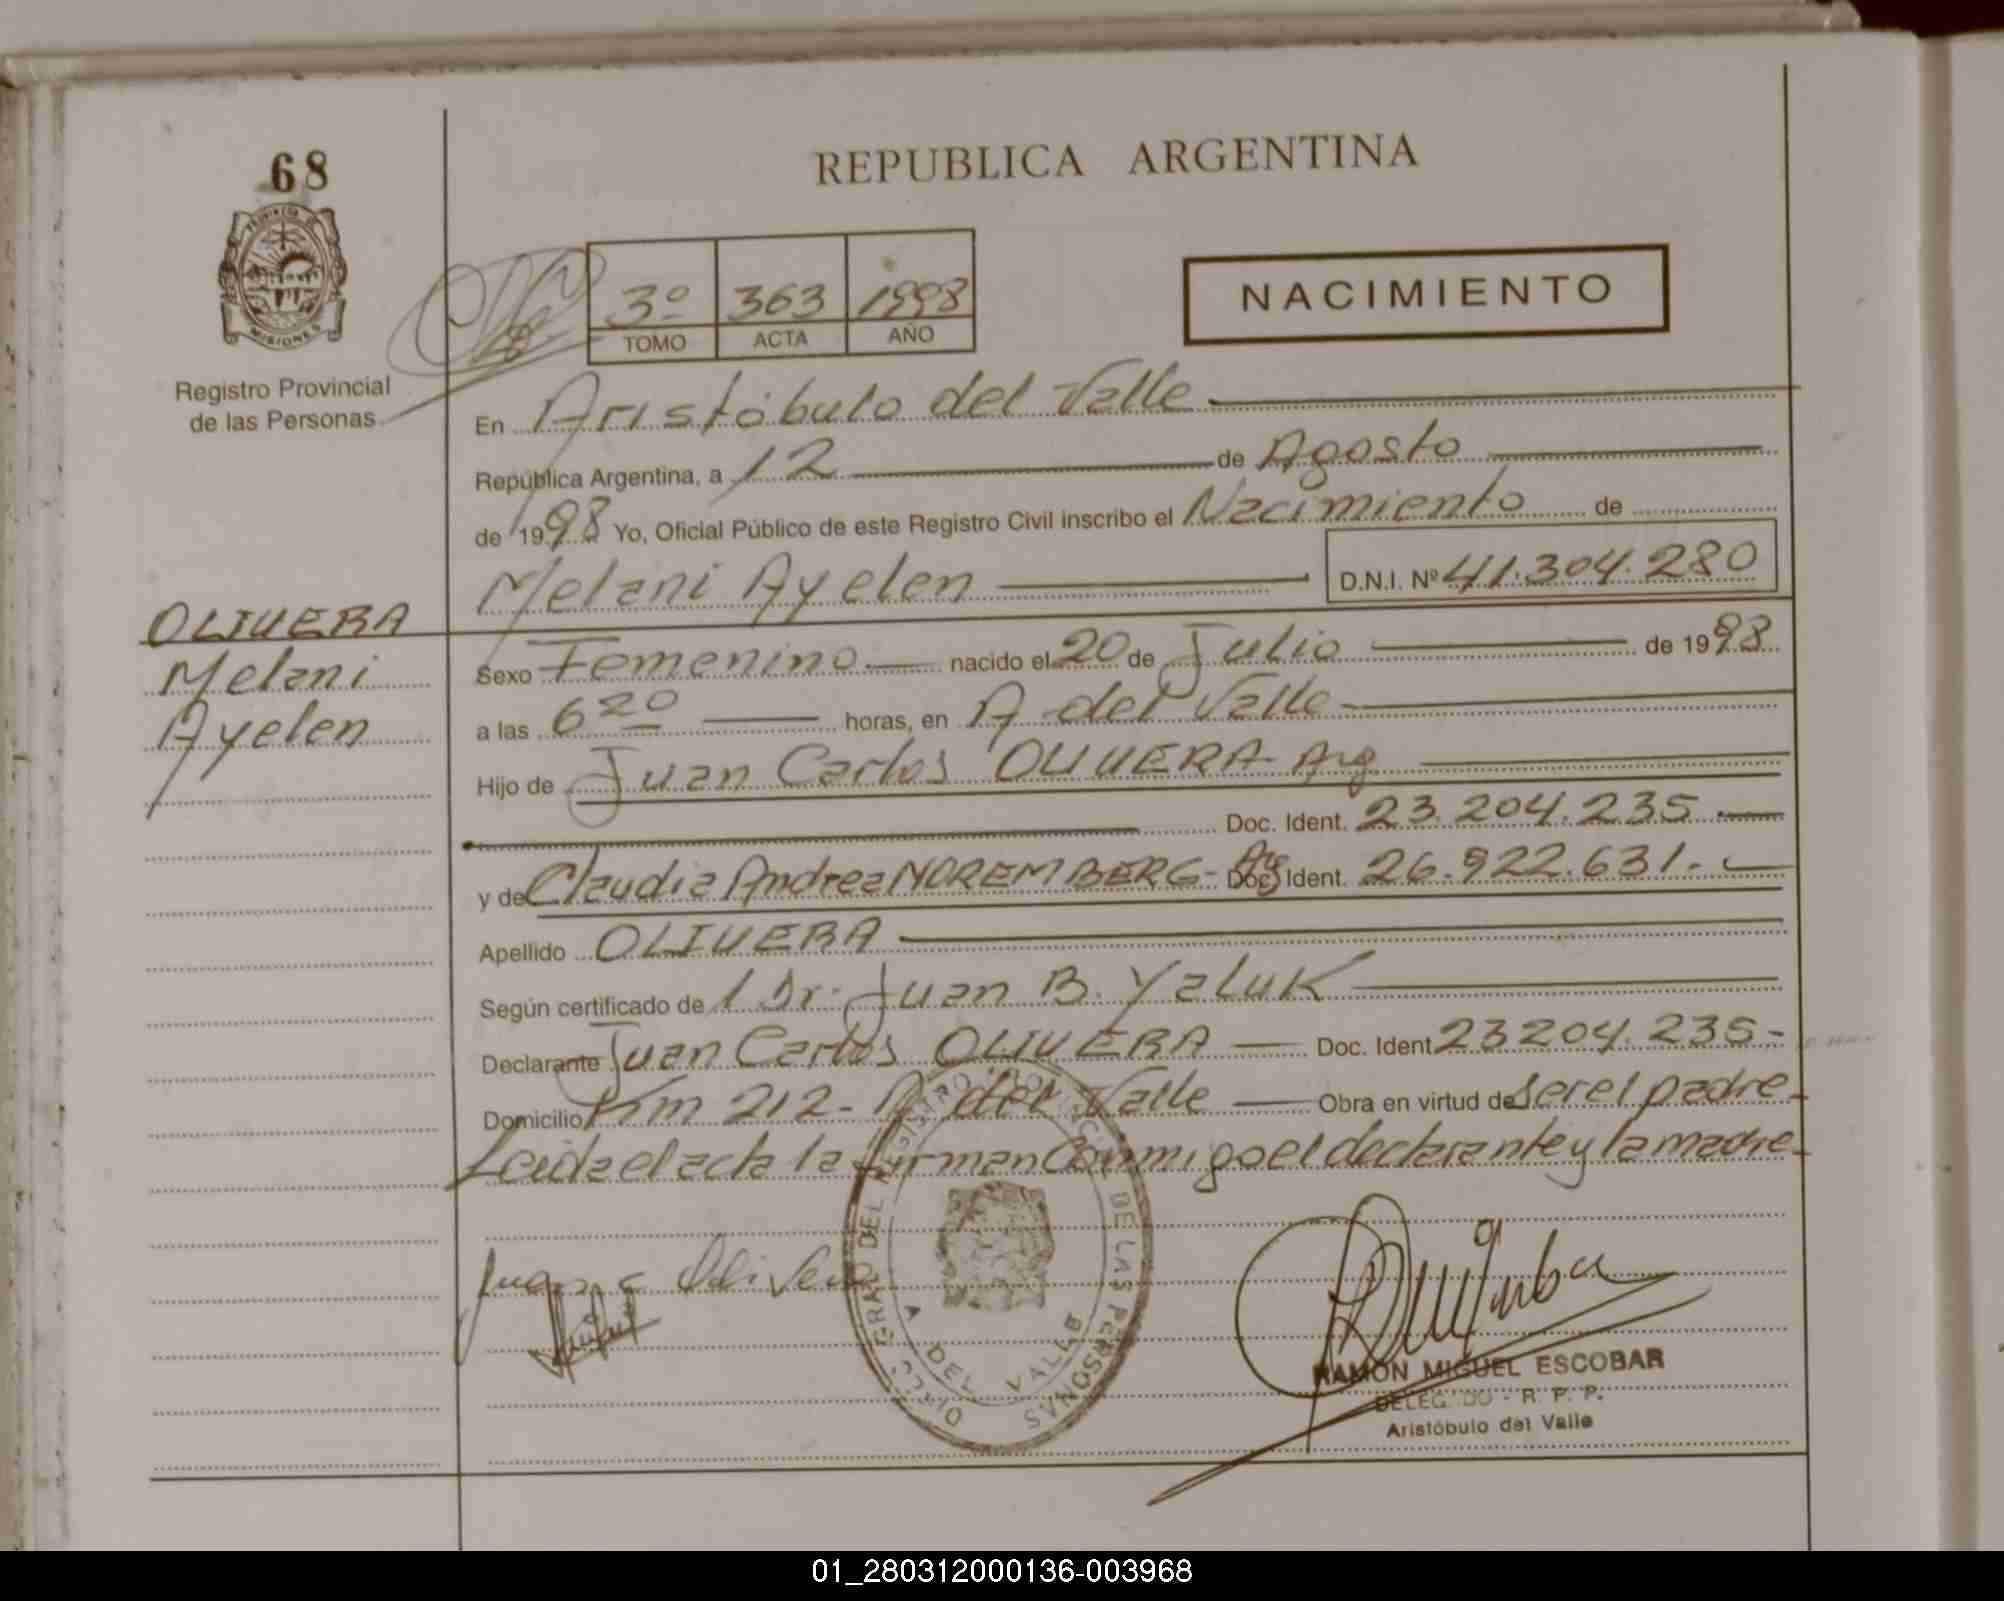 68
REPUBLICA ARGENTINA
PROVINCIA DE
MISIONES
Registro Provincial
de las Personas
3º 363 1998
TOMO ACTA AÑO
NACIMIENTO
En Aristóbulo del Valle
República Argentina, a 12 de Agosto
de 1998 Yo, Oficial Público de este Registro Civil inscribo el Nacimiento de
Melani Ayelen D.N.I. Nº 41.304.280
OLIVERA
Melani
Ayelen
Sexo Femenino nacido el 20 de Julio de 1998
a las 6 20 horas, en A del Valle
Hijo de Juan Carlos OLIVERA- Arg
Doc. Ident. 23.204.235
y de Claudia Andrea NOREMBERG- Arg Doc. Ident. 26.922.631.-
Apellido OLIVERA
Según certificado de l Dr. Juan B. Yaluk
Declarante Juan Carlos OLIVERA Doc. Ident 23204.235-
Domicilio Km 212- A del Valle Obra en virtud de ser el padre-
Leida el acta la firman conmigo el declarante y la madre-
DEL REGISTRO PROVINCIAL DE LAS PERSONAS
A DEL VALLE
RAMON MIGUEL ESCOBAR
DELEGADO - R. P. P.
Aristóbulo del Valle
01_280312000136-003968